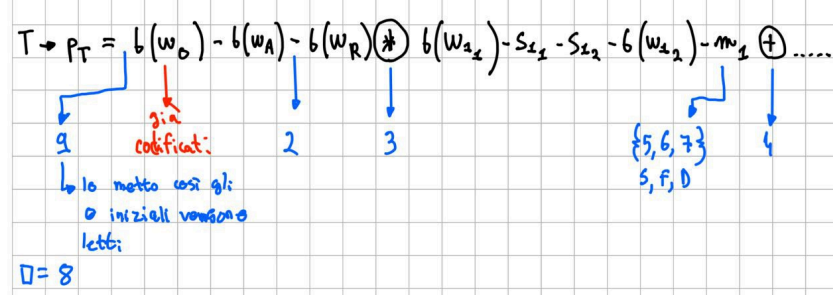 T → p_T = b(w_0) - b(w_A) - b(w_R) ⊛ b(w_{1_1}) - s_{1_1} - s_{1_2} - b(w_{1_2}) - m_1 ⊕ .....
9 già 2 3 {5, 6, 7} 4
codificati S, F, D
lo metto così gli
0 iniziali vengono
letti
□ = 8